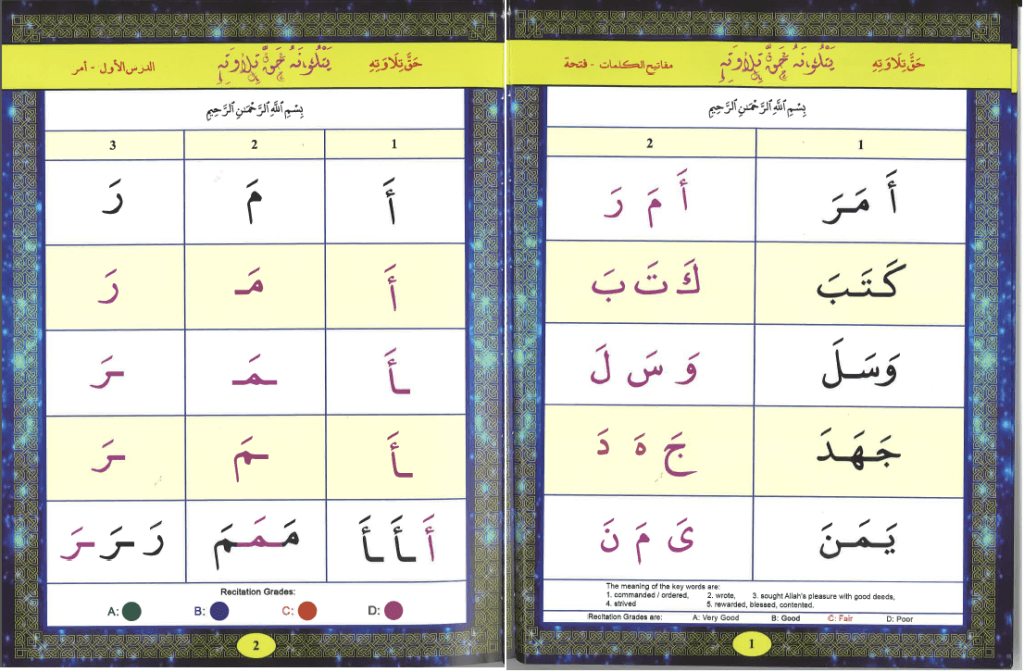 حَقَّ تِلَاوَتِهِ يَتْلُونَهُ حَقَّ تِلَاوَتِهِ مفاتيح الكلمات - فتحة
بِسْمِ اللَّهِ الرَّحْمَٰنِ الرَّحِيمِ
1 2
أَمَرَ أَ مَ رَ
كَتَبَ كَ تَ بَ
وَسَلَ وَ سَ لَ
جَهَدَ جَ هَ دَ
يَمَنَ یَ مَ نَ
The meaning of the key words are:
1. commanded / ordered, 2. wrote, 3. sought Allah's pleasure with good deeds,
4. strived 5. rewarded, blessed, contented.
Recitation Grades are: A: Very Good B: Good C: Fair D: Poor
1
حَقَّ تِلَاوَتِهِ يَتْلُونَهُ حَقَّ تِلَاوَتِهِ الدرس الأول - أمر
بِسْمِ اللَّهِ الرَّحْمَٰنِ الرَّحِيمِ
1 2 3
أَ مَ رَ
أَ مَـ رَ
ـأَ ـمَـ ـرَ
ـأَ ـمَ ـرَ
أَ ـأَ ـأَ مَـمَـمَ رَ ـرَ ـرَ
Recitation Grades:
A: B: C: D:
2